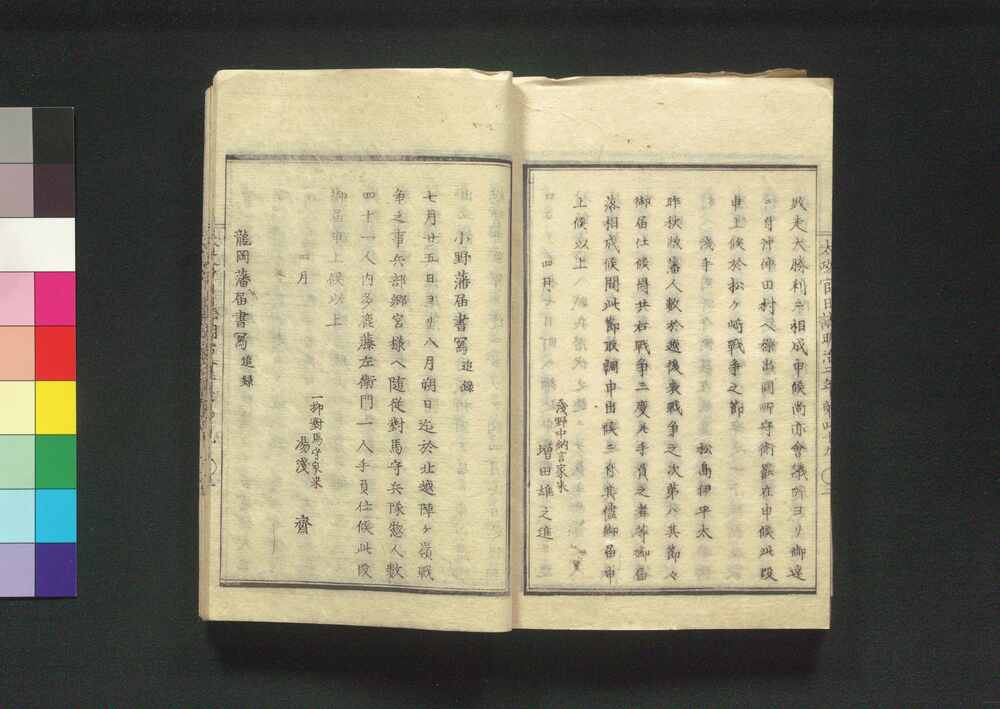 敗走大勝利ニ相成申候尚亦會議所ヨリ御達
一付沖仲田村ヘ繰出同所守衛罷在申候此段
申上候於松ケ崎戰争之節
淺手 松髙伊平太
昨秋弊藩人數於越後表戰争之次第ハ其節々
御届仕候得共右戰争三度共手負之者等御届
落相成候間此節取調申出候ニ付其儘御届申
上候以上
四月
淺野中納言家来
増田雄之進
小野藩届書冩追録
七月廿五日ヨリ八月朔日迄於北越陣ケ嶺戰
争之事兵部卿宮様ヘ随従對馬守兵隊惣人數
四十一人内多鹿藤左衛門一人手負仕候此段
御届申上候以上
四月
一柳對馬守家来
湯淺 齋
龍岡藩届書冩追録